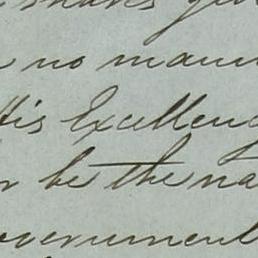 no mann
His Excellenc
be the na
overnment